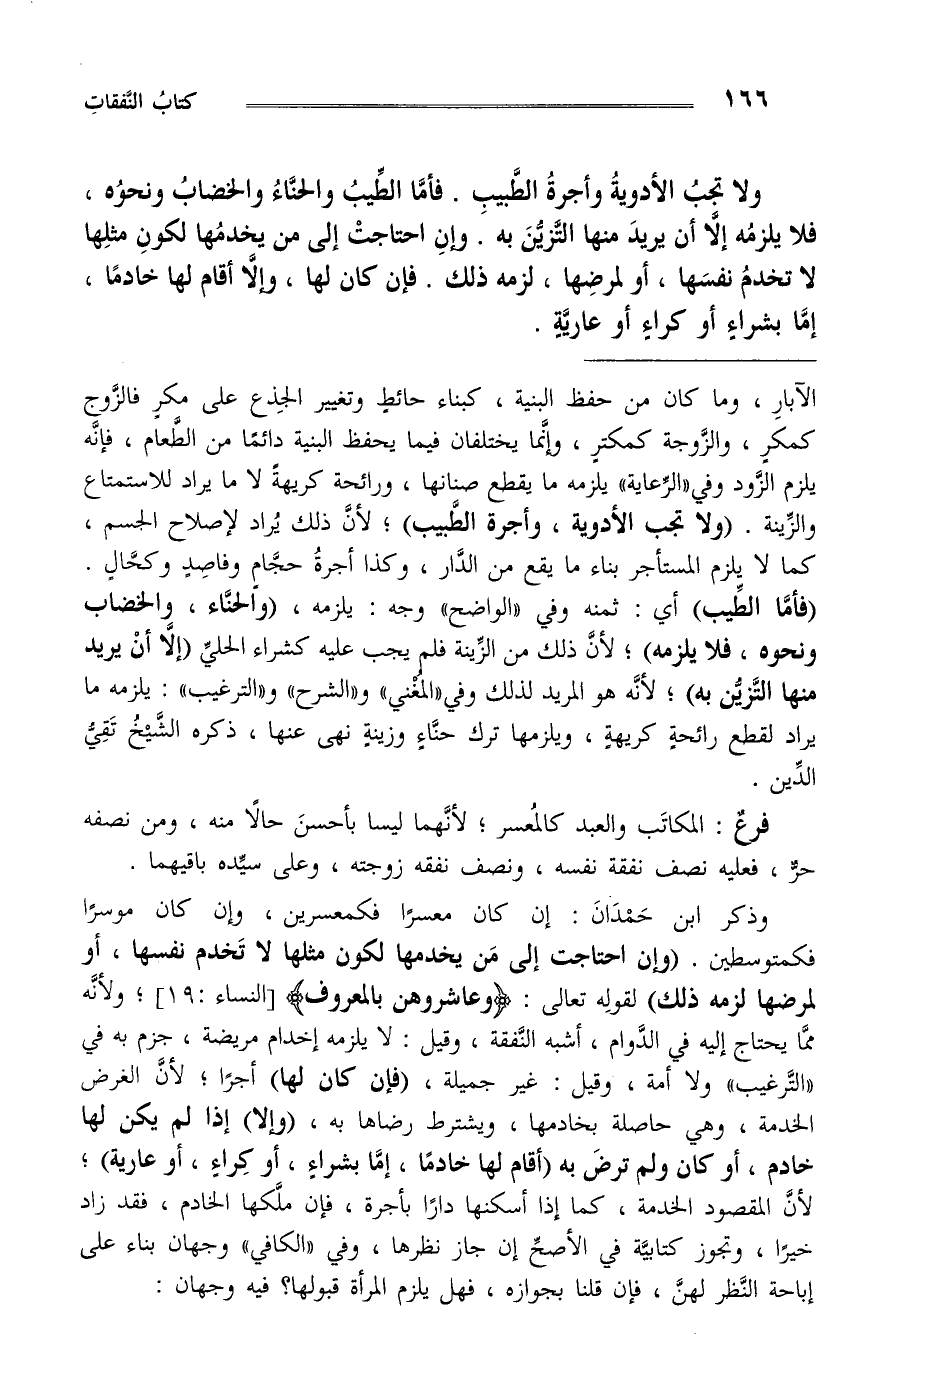 ١٦٦ كتابُ النَّفقاتِ
ولا تجبُ الأدويةُ وأجرةُ الطَّبيبِ . فأمَّا الطِّيبُ والحنَّاءُ والخضابُ ونحوُه ،
فلا يلزمُه إلَّا أن يريدَ منها التَّزيُّنَ به . وإنِ احتاجتْ إلى من يخدمُها لكونِ مثلِها
لا تخدمُ نفسَها ، أو لمرضِها ، لزمه ذلك . فإن كان لها ، وإلَّا أقام لها خادمًا ،
إمَّا بشراءٍ أو كراءٍ أو عاريَّةٍ .
الآبارِ ، وما كان من حفظ البنية ، كبناء حائطٍ وتغيير الجِذع على مكرٍ فالزَّوج
كمكرٍ ، والزَّوجة كمكترٍ ، وإنَّما يختلفان فيما يحفظ البنية دائمًا من الطَّعام ، فإنَّه
يلزم الزَّود وفي«الرِّعاية» يلزمه ما يقطع صنانها ، ورائحة كريهةً لا ما يراد للاستمتاع
والزِّينة . (ولا تجب الأدوية ، وأجرة الطَّبيب) ؛ لأنَّ ذلك يُراد لإصلاح الجسم ،
كما لا يلزم المستأجر بناء ما يقع من الدَّار ، وكذا أجرةُ حجَّامٍ وفاصِدٍ وكحَّالٍ .
(فأمَّا الطِّيب) أي : ثمنه وفي «الواضح» وجه : يلزمه ، (والحنَّاء ، والخضاب
ونحوه ، فلا يلزمه) ؛ لأنَّ ذلك من الزِّينة فلم يجب عليه كشراء الحليِّ (إلَّا أنْ يريد
منها التَّزيُّن به) ؛ لأنَّه هو المريد لذلك وفي«المُغْني» و«الشرح» و«الترغيب» : يلزمه ما
يراد لقطع رائحةٍ كريهةٍ ، ويلزمها ترك حنَّاءٍ وزينةٍ نهى عنها ، ذكره الشَّيْخُ تَقِيُّ
الدِّين .
فرعٌ : المكاتَب والعبد كالمُعسر ؛ لأنَّهما ليسا بأحسنَ حالًا منه ، ومن نصفه
حرٌّ ، فعليه نصف نفقة نفسه ، ونصف نفقه زوجته ، وعلى سيِّده باقيهما .
وذكر ابن حَمْدَانَ : إن كان معسرًا فكمعسرين ، وإن كان موسرًا
فكمتوسطين . (وإن احتاجت إلى مَن يخدمها لكون مثلها لا تَخدم نفسها ، أو
لمرضها لزمه ذلك) لقولِه تعالى : ﴿وعاشروهن بالمعروف﴾ [النساء :١٩] ؛ ولأنَّه
ممَّا يحتاج إليه في الدَّوام ، أشبه النَّفقة ، وقيل : لا يلزمه إخدام مريضة ، جزم به في
«التَّرغيب» ولا أمة ، وقيل : غير جميلة ، (فإن كان لها) أجزا ؛ لأنَّ الغرض
الخدمة ، وهي حاصلة بخادمها ، ويشترط رضاها به ، (وإلا) إذا لم يكن لها
خادم ، أو كان ولم ترضَ به (أقام لها خادمًا ، إمَّا بشراءٍ ، أو كِراءٍ ، أو عارية) ؛
لأنَّ المقصود الخدمة ، كما إذا أسكنها دارًا بأجرة ، فإن ملَّكها الخادم ، فقد زاد
خيرًا ، وتجوز كتابيَّة في الأصحِّ إن جاز نظرها ، وفي «الكافي» وجهان بناء على
إباحة النَّظر لهنَّ ، فإن قلنا بجوازه ، فهل يلزم المرأة قبولها؟ فيه وجهان :